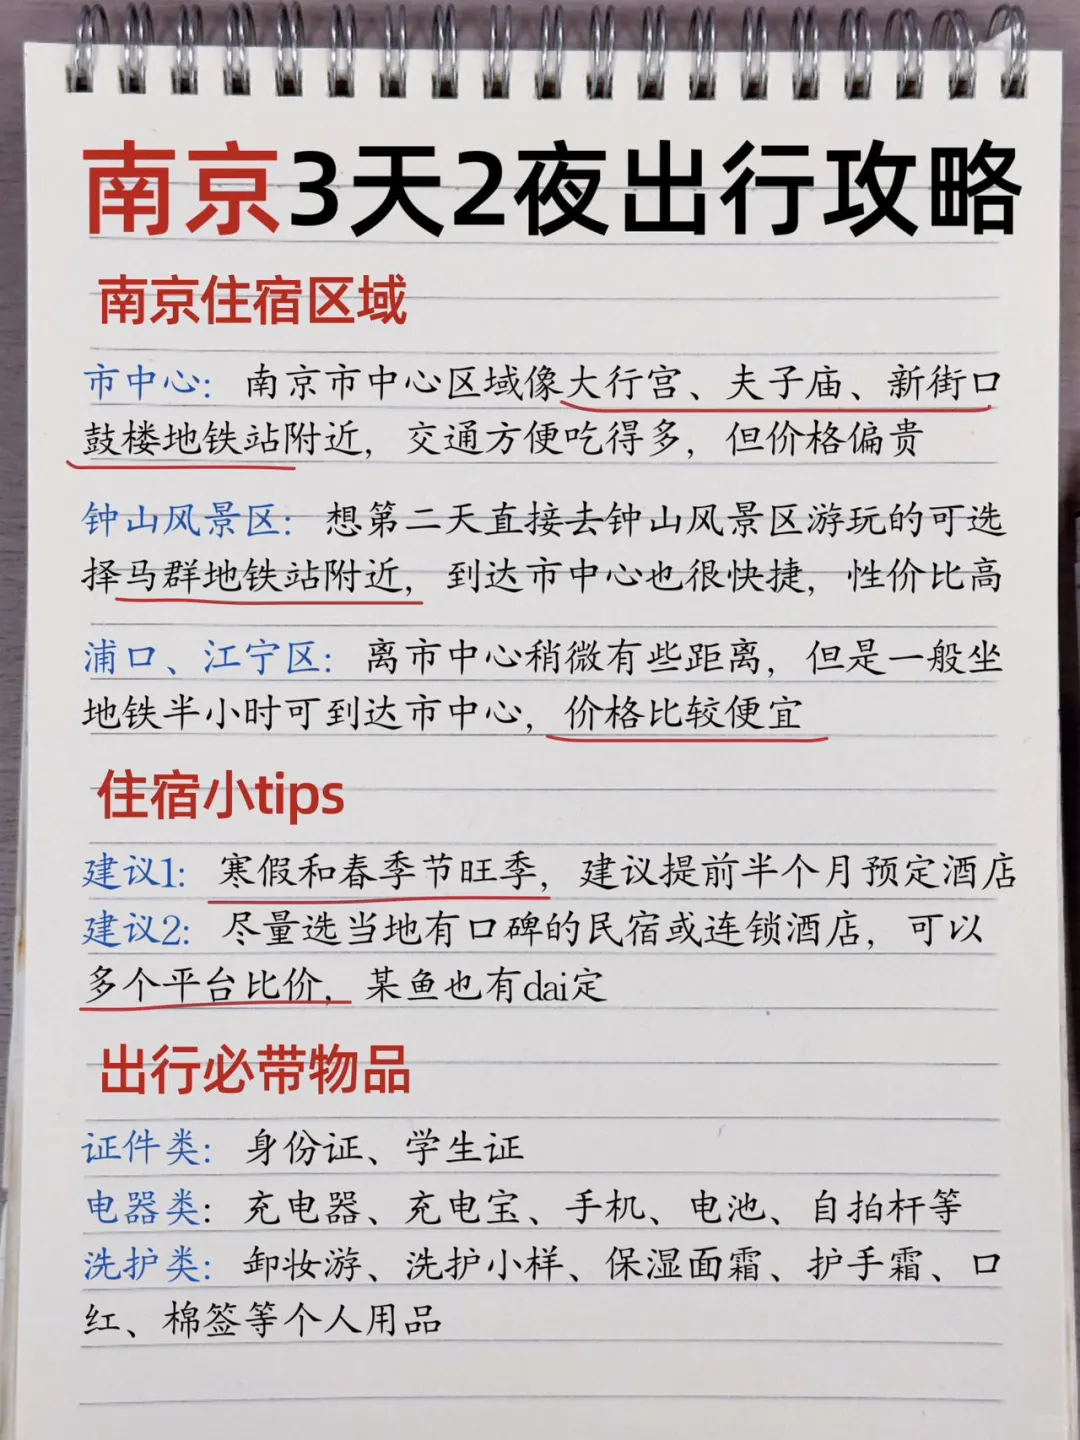 南京3天2夜出行攻略
南京住宿区域
市中心: 南京市中心区域像大行宫、夫子庙、新街口
鼓楼地铁站附近, 交通方便吃得多, 但价格偏贵
钟山风景区: 想第二天直接去钟山风景区游玩的可选
择马群地铁站附近, 到达市中心也很快捷, 性价比高
浦口、江宁区: 离市中心稍微有些距离, 但是一般坐
地铁半小时可到达市中心, 价格比较便宜
住宿小tips
建议1: 寒假和春季节旺季, 建议提前半个月预定酒店
建议2: 尽量选当地有口碑的民宿或连锁酒店, 可以
多个平台比价, 某鱼也有dai定
出行必带物品
证件类: 身份证、学生证
电器类: 充电器、充电宝、手机、电池、自拍杆等
洗护类: 卸妆游、洗护小样、保湿面霜、护手霜、口
红、棉签等个人用品